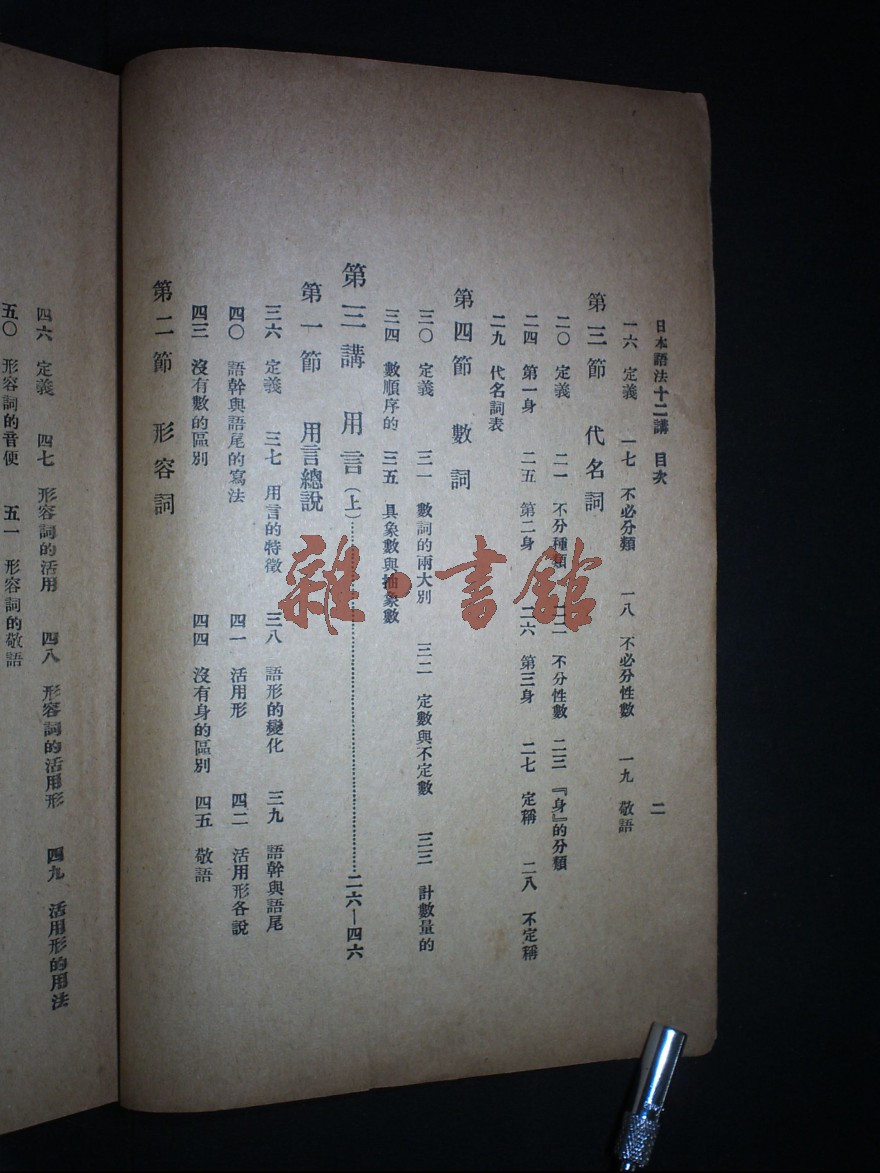 日本語法十二講 目次 二
一六 定義 一七 不必分類 一八 不必分性數 一九 敬語
第三節 代名詞
二〇 定義 二一 不分種類 二二 不分性數 二三 『身』的分類
二四 第一身 二五 第二身 二六 第三身 二七 定稱 二八 不定稱
二九 代名詞表
第四節 數詞
三〇 定義 三一 數詞的兩大別 三二 定數與不定數 三三 計數量的
三四 數順序的 三五 具象數與抽象數
第三講 用言(上)……二六—四六
第一節 用言總說
三六 定義 三七 用言的特徵 三八 語形的變化 三九 語幹與語尾
四〇 語幹與語尾的寫法 四一 活用形 四二 活用形各說
四三 沒有數的區別 四四 沒有身的區別 四五 敬語
第二節 形容詞
四六 定義 四七 形容詞的活用 四八 形容詞的活用形 四九 活用形的用法
五〇 形容詞的音便 五一 形容詞的敬語
雜·書館